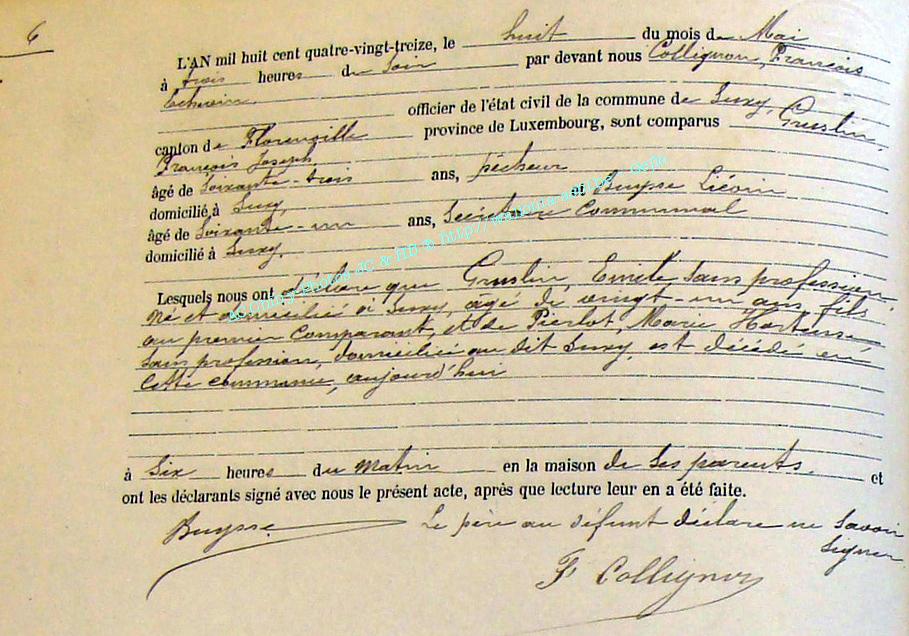 6
L'AN mil huit cent quatre-vingt-treize, le huit du mois de Mai
à trois heures du Soir par devant nous Collignon, François
Echevin, officier de l'état civil de la commune de Suxy,
canton de Florenville province de Luxembourg, sont comparus Gruslin,
François Joseph
âgé de Soixante-trois ans, pêcheur
domicilié à Suxy, et Buysse Liévin
âgé de Soixante-un ans, Secrétaire Communal
domicilié à Suxy.
Lesquels nous ont déclaré que Gruslin, Emile, Sans profession,
né et domicilié à Suxy, agé de vingt-un ans, fils
du premier Comparant, et de Pierlot, Marie Hortense
Sans profession, domiciliée au dit Suxy, est décédé en
Cette commune, aujourd'hui
à Six heures du Matin en la maison de Ses parents. et
ont les déclarants signé avec nous le présent acte, après que lecture leur en a été faite.
Buysse Le père du défunt déclare ne Savoir
Signer
F Collignon